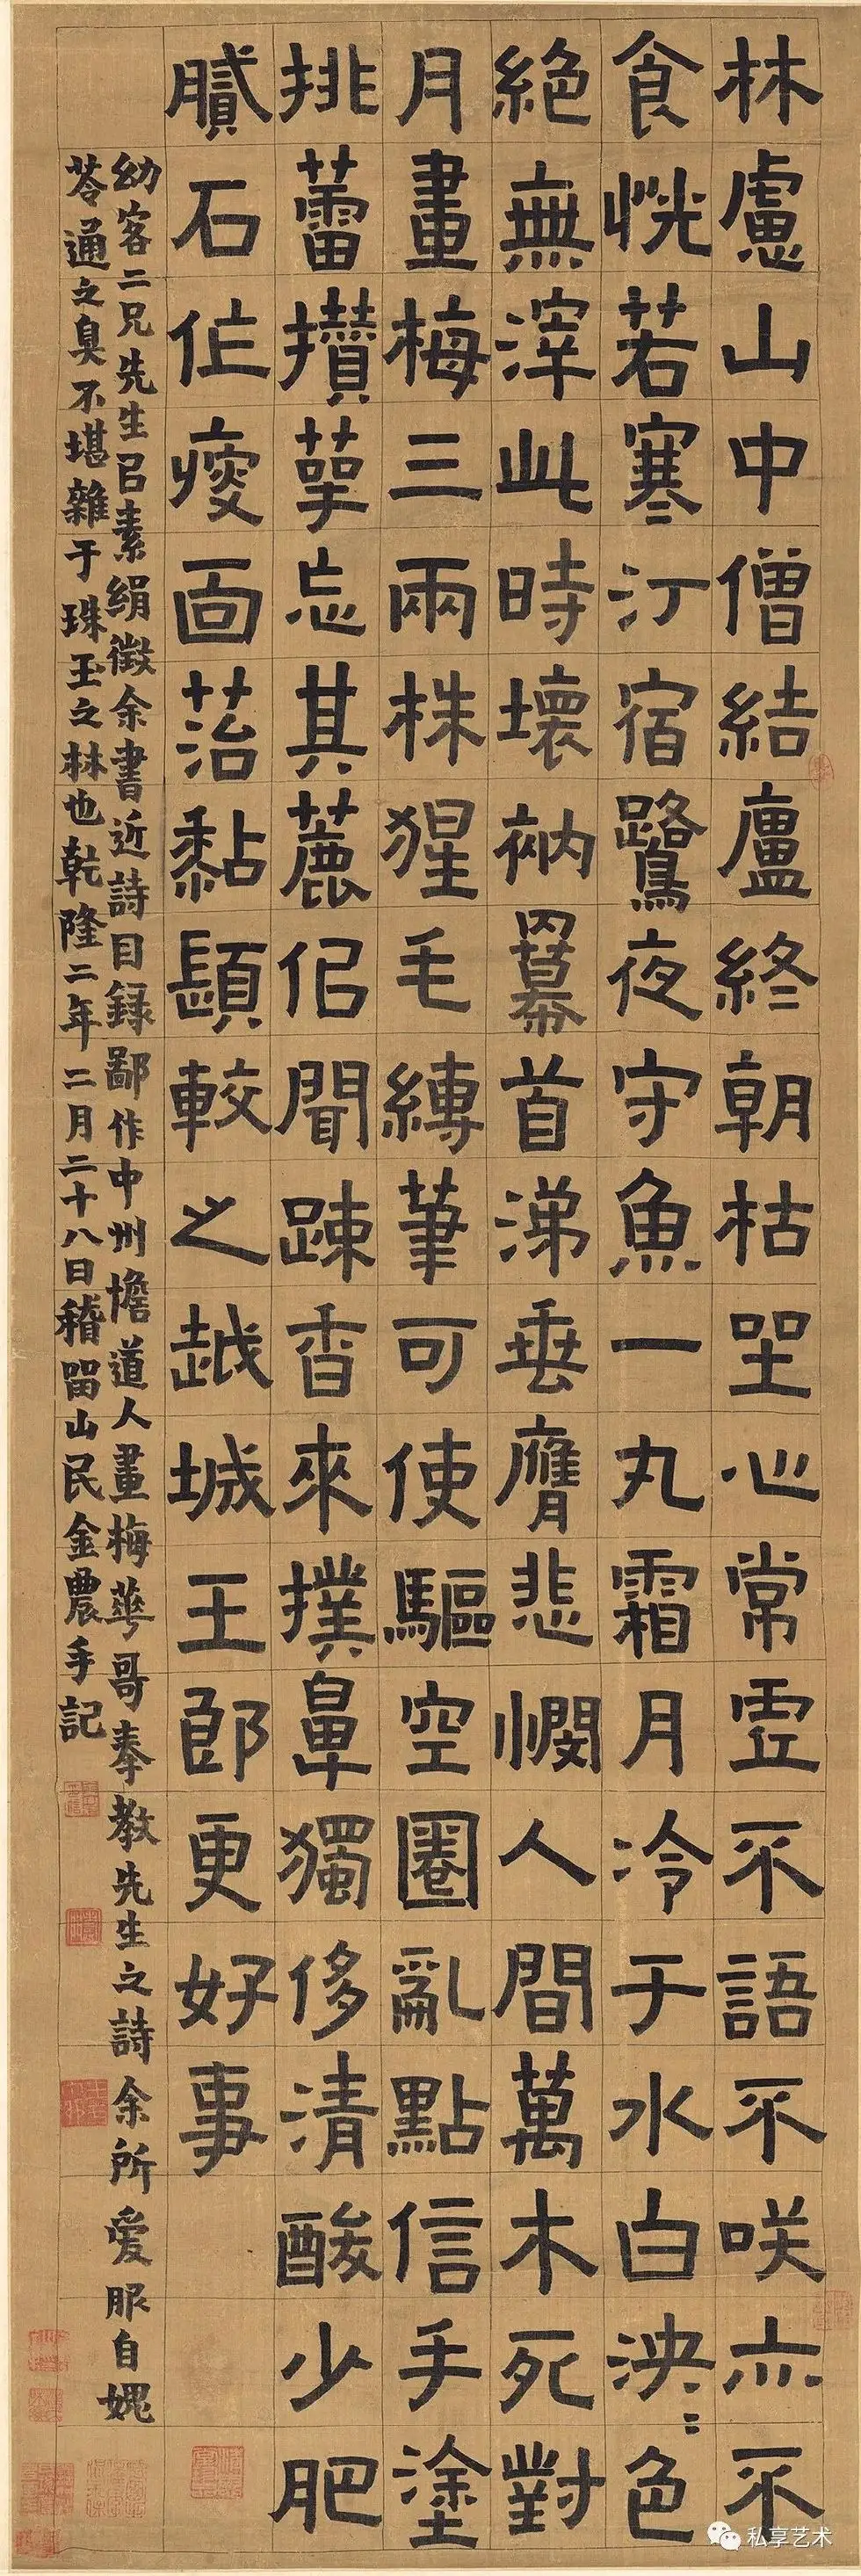 林慮山中僧結廬終朝枯坐心常虛不語不咲亦不
食恍若寒汀宿鷺夜守魚一丸霜月冷于水白泱〻色
絶無滓此時壞衲羃首涕垂膺悲憫人間萬木死對
月畫梅三兩株猩毛縛筆可使驅空圈亂點信手塗
挑蕾攢萼忘其麤但聞疎香來撲鼻獨侈清酸少肥
膩石作瘦面苔黏頤較之越城王郎更好事
幼客二兄先生以素絹徵余書近詩目録鄙作中州憺道人畫梅華哥奉教先生之詩余所愛服自媿
苓通之臭不堪雜于珠玉之林也乾隆二年二月二十八日稽留山民金農手記
私享艺术